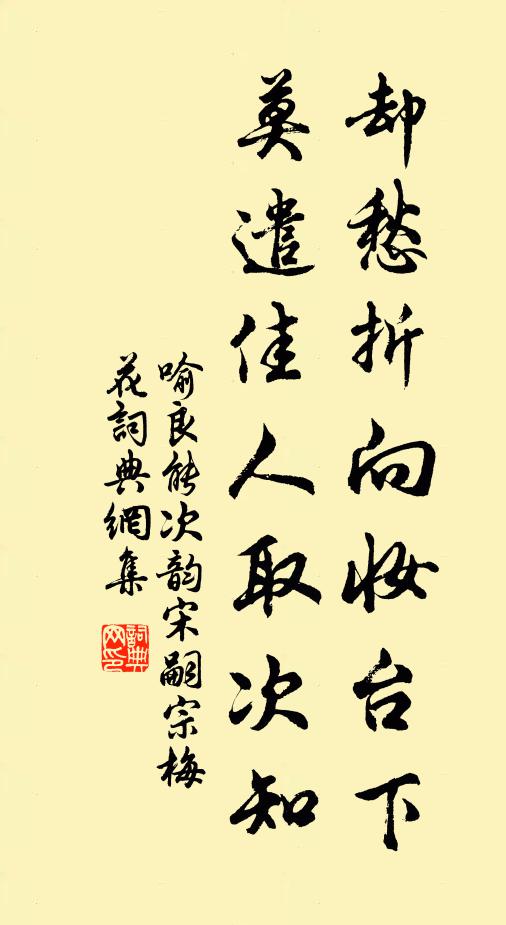 却愁折向妝台下
莫遣佳人取次知
喻良能次韵宋嗣宗梅
花詞典網集
詞典
网印